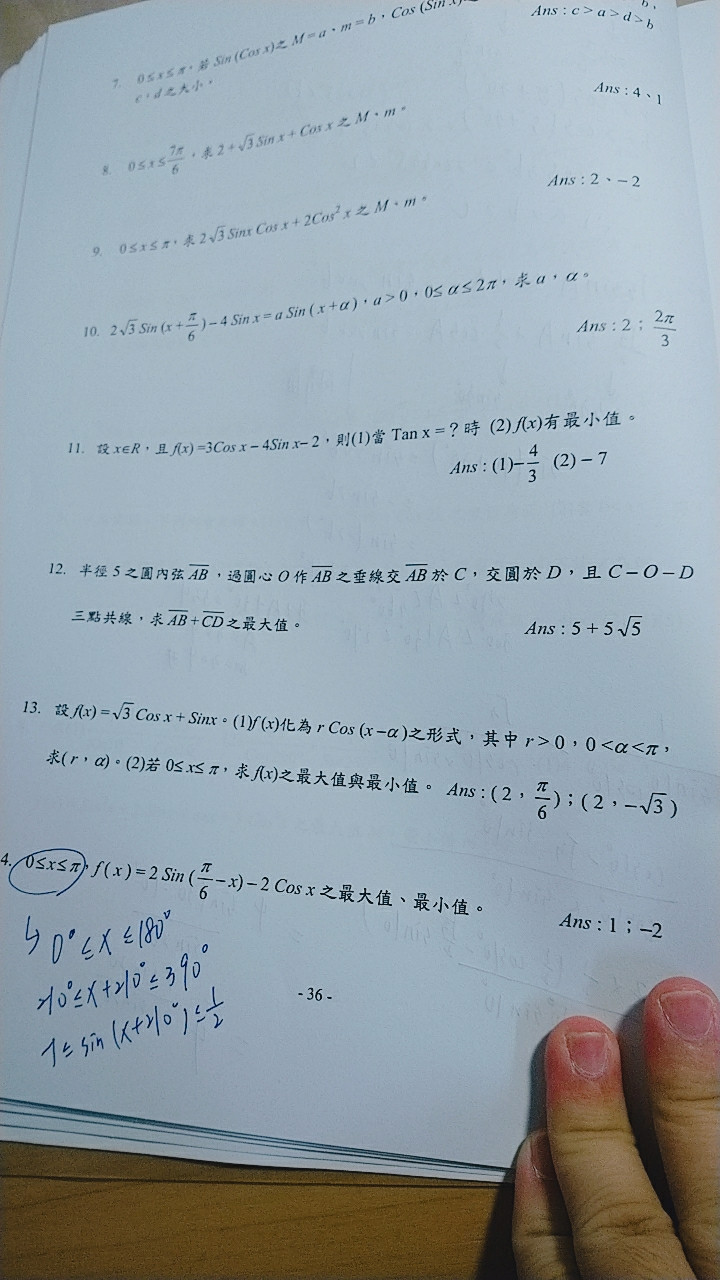 7. 0≤x≤π，若 Sin (Cos x)之 M=a、m=b，Cos (Sin x)
c、d之大小。
Ans : c > a > d > b
8. 0≤x≤7π/6，求 2+√3 Sin x + Cos x 之 M、m。
Ans : 4、1
9. 0≤x≤π，求 2√3 Sinx Cos x + 2Cos² x 之 M、m。
Ans : 2、-2
10. 2√3 Sin (x+π/6)-4 Sin x = a Sin (x+α)，a>0，0≤α≤2π，求 a，α。
Ans : 2；2π/3
11. 設 x∈R，且 f(x) =3Cos x－4Sin x－2，則(1)當 Tan x =？時 (2) f(x)有最小值。
Ans : (1)-4/3 (2)－7
12. 半徑 5 之圓內弦 AB，過圓心 O 作 AB 之垂線交 AB 於 C，交圓於 D，且 C－O－D
三點共線，求 AB+CD 之最大值。
Ans : 5 + 5√5
13. 設 f(x) = √3 Cos x + Sinx。(1)f (x)化為 r Cos (x－α)之形式，其中 r > 0，0 <α<π，
求(r，α)。(2)若 0≤x≤π，求 f(x)之最大值與最小值。 Ans : (2，π/6)；(2，-√3)
4. 0≤x≤π，f (x) = 2 Sin (π/6-x)－2 Cos x 之最大值、最小值。
Ans : 1；-2
↳ 0°≤x≤180°
210°≤x+210°≤390°
-1≤sin (x+210°)≤1/2
- 36 -